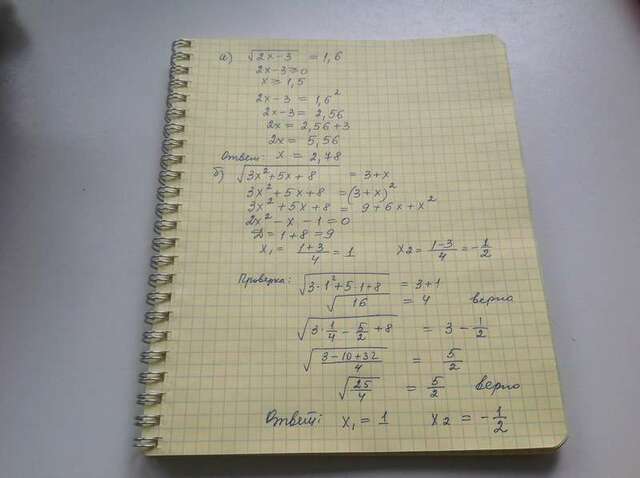 а) √(2x-3) = 1,6
2x-3≥0
x≥1,5
2x-3 = 1,6²
2x-3 = 2,56
2x = 2,56+3
2x = 5,56
Ответ: x = 2,78
б) √(3x²+5x+8) = 3+x
3x²+5x+8 = (3+x)²
3x²+5x+8 = 9+6x+x²
2x²-x-1=0
D=1+8=9
x₁ = (1+3)/4 = 1 x2 = (1-3)/4 = -1/2
Проверка: √(3·1²+5·1+8) = 3+1
√16 = 4 верно
√(3·1/4 - 5/2 + 8) = 3 - 1/2
√((3-10+32)/4) = 5/2
√(25/4) = 5/2 верно
Ответ: x₁ = 1 x2 = -1/2